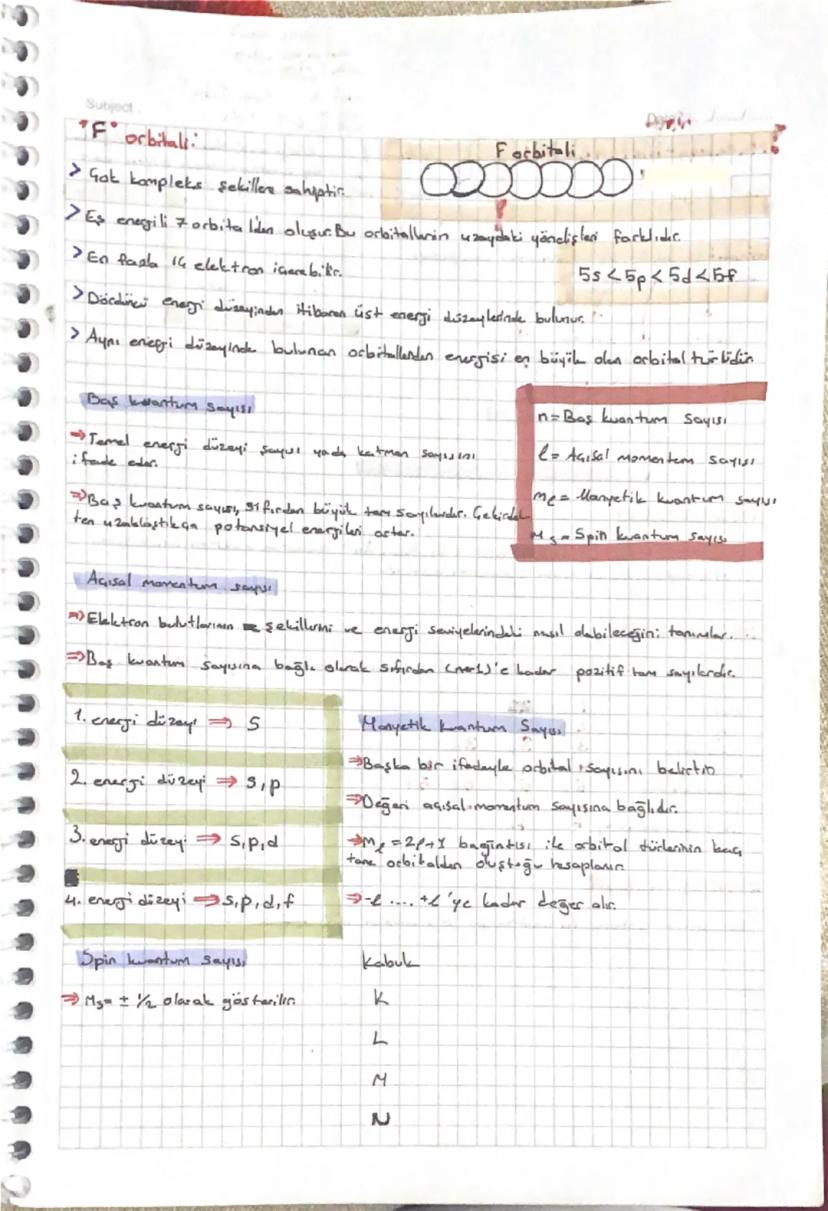 Subject
"F" orbitali:
F orbitali
> Çok kompleks şekillere sahiptir.
> Eş energili 7 orbitalden oluşur. Bu orbitallerin uzaydaki yönelişleri farklıdır.
> En fazla 14 elektron içerebilir.
5s < 5p < 5d < 5f
> Dördüncü enerji düzeyinden itibaren üst enerji düzeylerinde bulunur.
> Aynı enerji düzeyinde bulunan orbitallerden energisi en büyük olan orbital türüdür
Baş kuantum sayısı
⇒ Temel enerji düzeyi sayısı yada katman sayısını
ifade eder.
⇒ Baş kuantum sayısı, sıfırdan büyük tam sayılardır. Çekirdek
ten uzaklaştıkça potansiyel energileri artar.
n = Baş kuantum sayısı
l = Açısal momentum sayısı
ml = Manyetik kuantum sayısı
Ms = Spin kuantum sayısı
Açısal momentum sayısı
⇒ Elektron bulutlarının şekillerini ve energi seviyelerindeki nasıl olabileceğini tanımlar.
⇒ Baş kuantum sayısına bağlı olarak sıfırdan (n-1)'e kadar pozitif tam sayılardır.
1. enerji düzeyi ⇒ S
2. enerji düzeyi ⇒ s,p
3. enerji düzeyi ⇒ s,p,d
4. enerji düzeyi ⇒ s,p,d,f
Manyetik kuantum Sayısı
⇒ Başka bir ifadeyle orbital sayısını belirtir
⇒ Değeri açısal momentum sayısına bağlıdır.
⇒ Ml = 2l+1 bağıntısı ile orbital türlerinin kaç
tane orbitalden oluştuğu hesaplanır.
⇒ -l .... +l 'ye kadar değer alır.
Spin kuantum sayısı
⇒ Ms = ± 1/2 olarak gösterilir.
Kabuk
K
L
M
N